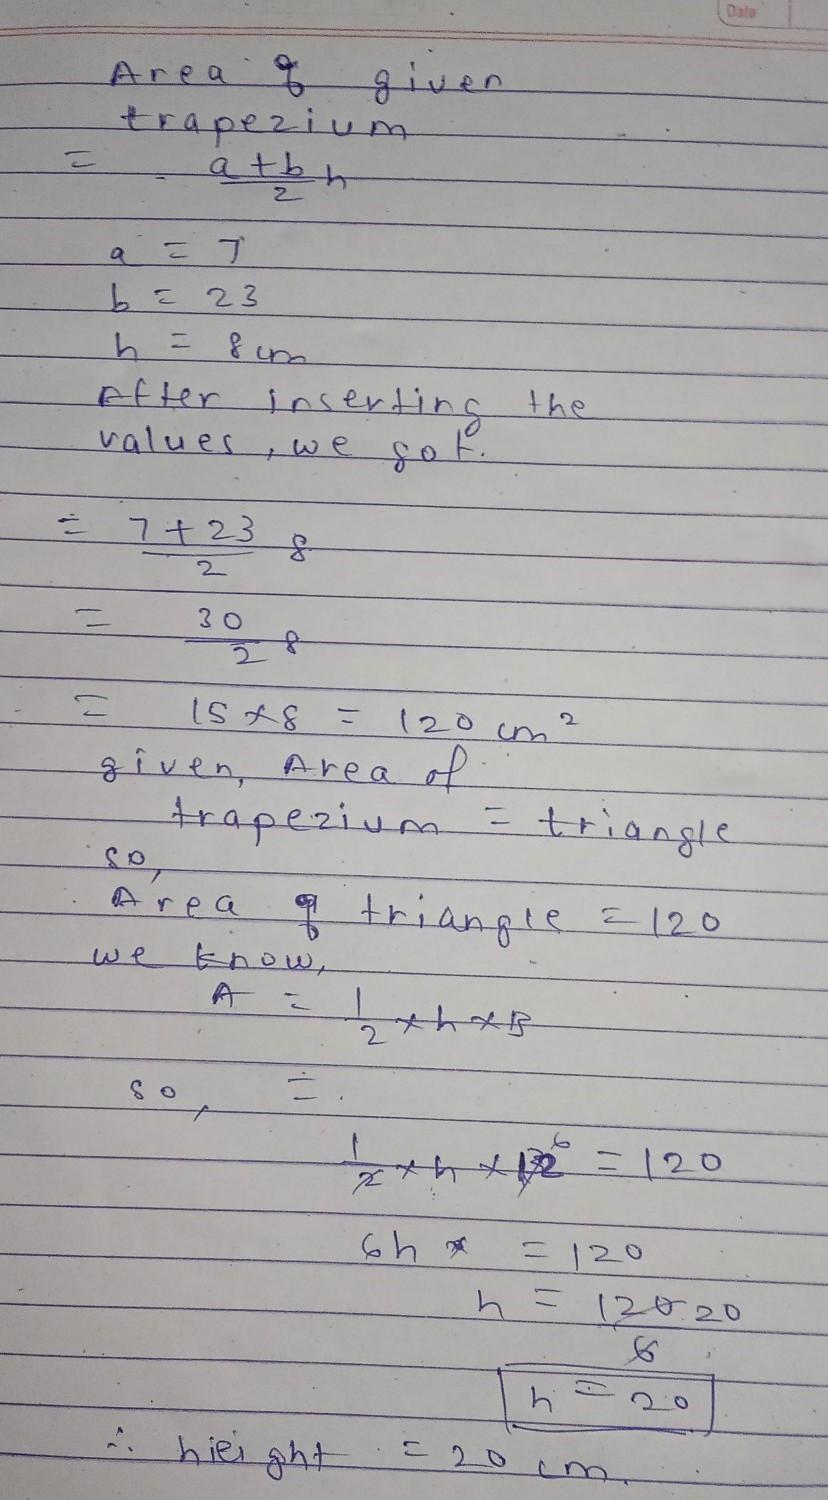 Date
Area of given
trapezium
= a+b/2 h
a = 7
b = 23
h = 8 cm
After inserting the
values, we got.
= 7+23/2 8
= 30/2 8
= 15×8 = 120 cm²
given, Area of
trapezium = triangle
so,
Area of triangle = 120
we know,
A = 1/2 × h × B
so, =
1/2 × h × 12 6 = 120
6h = 120
h = 120/6 20
h = 20
∴ hieight = 20 cm.